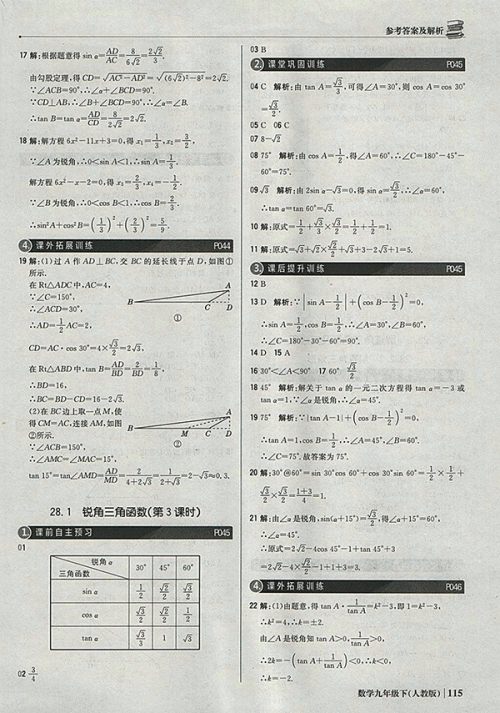 参考答案及解析
17 解:根据题意得 sin α=AD/AC=8/(6√2)=2√2/3.
由勾股定理,得 CD=√(AC²-AD²)=√((6√2)²-8²)=2√2.
∵∠ACB=90°,∴∠α+∠BCD=90°.
∵CD⊥AB,∴∠B+∠BCD=90°,∴∠α=∠B.
∴tan B=tan α=AD/CD=8/(2√2)=2√2.
18 解:解方程 6x²-11x+3=0,得 x₁=1/3,x₂=3/2,
∵∠A 为锐角,∴0<sin A<1,∴sin A=1/3.
解方程 6x²-x-2=0,得 x₁=2/3,x₂=-1/2.
∵∠B 为锐角,∴0<cos B<1,∴cos B=2/3.
∴sin²A+cos²B=(1/3)²+(2/3)²=5/9.
4. 课外拓展训练 P044
19 解:(1)过 A 作 AD⊥BC,交 BC 的延长线于点 D,如图①
所示.
在 Rt△ADC 中,AC=4,
∵∠C=150°,
∴∠ACD=30°,
∴AD=1/2 AC=2,
CD=AC·cos 30°=4×√3/2=2√3,
在 Rt△ABD 中,tan B=AD/BD=2/BD=1/8,
∴BD=16,
∴BC=BD-CD=16-2√3.
(2)在 BC 边上取一点 M,使
得 CM=AC,连接 AM,如图
②所示.
∵∠ACB=150°,
∴∠AMC=∠MAC=15°,
tan 15°=tan∠AMD=AD/MD=2/(4+2√3)=1/(2+√3)=2-√3≈0.3.
A
B C D
①
A
B M C D
②
28.1 锐角三角函数(第3课时)
1. 课前自主预习 P045
01
锐角 α 30° 45° 60°
三角函数
sin α 1/2 √2/2 √3/2
cos α √3/2 √2/2 1/2
tan α √3/3 1 √3
02 3/4
03 B
2. 课堂巩固训练 P045
04 C 解析:由 tan A=√3/3,可得∠A=30°,则 cos A=cos 30°
=√3/2.
05 C 06 C
07 8-√2
08 75° 解析:由 cos A=1/2,得∠A=60°,∴∠C=180°-45°-
60°=75°.
09 √3 解析:由 2sin α-√3=0,得 sin α=√3/2,∴∠α=60°,
∴tan α=tan 60°=√3.
10 解:原式=1/2+√3×√3/2=1/2+1/2=1.
11 解:原式=√3+√2×√2/2+√3+3-2√3+1=5.
3. 课后提升训练 P045
12 B
13 D 解析:∵|sin A-1/2|+(cos B-1/2)²=0,
∴sin A=1/2,cos B=1/2,∴∠A=30°,∠B=60°,
∴∠C=180°-30°-60°=90°.
14 D 15 A
16 30°<∠A<90° 17 60° √3/2
18 45° 解析:解关于 tan α 的一元二次方程得 tan α=-3 或
tan α=1,∵∠α 是锐角,∴∠α=45°.
19 75° 解析:∵|tan A-1|+(cos B-1/2)²=0,
∴tan A=1,cos B=1/2,∴∠A=45°,∠B=60°,
∴∠C=75°.故答案为 75°.
20 解:30°@60°=sin 30°cos 60°+cos 30°sin 60°=1/2×1/2+
√3/2×√3/2=(1+3)/4=1.
21 解:由∠α 是锐角,sin(α+15°)=√3/2,得∠α+15°=60°,
∴∠α=45°.
∴原式=2√2-4cos 45°-1+tan 45°+3
=2√2-4×√2/2-1+1+3=3.
4. 课外拓展训练 P046
22 解:(1)由题意,得 tan A·1/tan A=k²-3,即 1=k²-3,
∴k²=4,∴k=±2.
由∠A 是锐角知 tan A>0,1/tan A>0,
∴2k=-(tan A+1/tan A)<0,∴k<0,
数学九年级下(人教版) 115